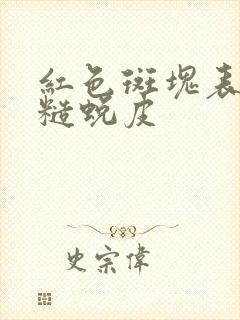 紅色斑塊表
糙蛻皮
史宗偉